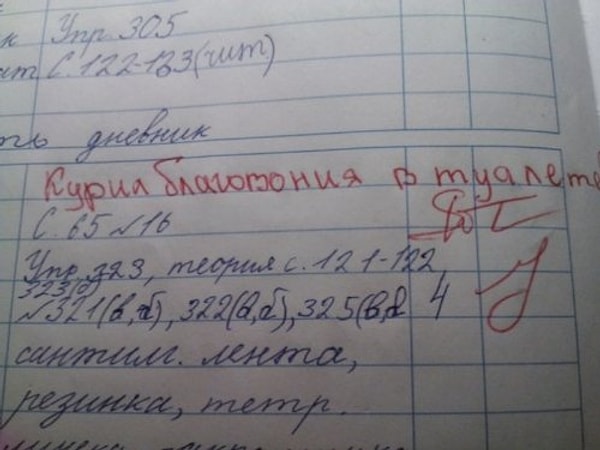 к Упр 305
ит С. 122-123(чит)
ть дневник
Курил благовония в туалете
С. 65 №16
Упр 323, теория с. 121-122
323(а)
№321(в,б), 322(а,б), 325(в,а 4
сантим. лента,
резинка, тетр.